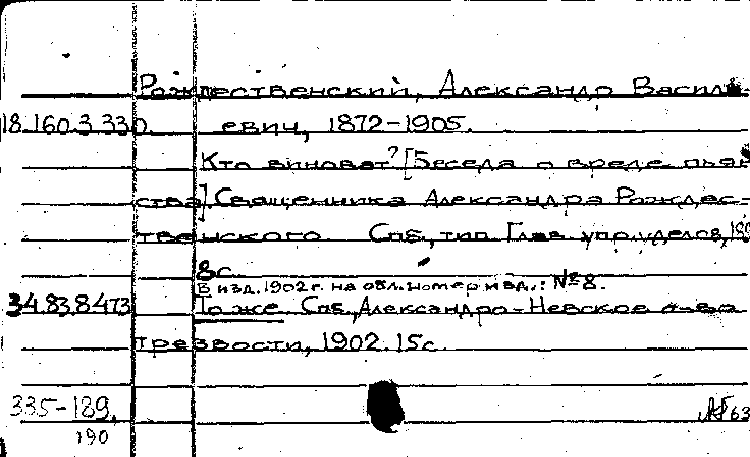 Рождественский, Александр Василь-
18.160.3.330. евич, 1872-1905.
Кто виноват? [Беседа о вреде пьян-
ства] Священника Александра Рождес-
твенского Спб., тип. Глав. упр. уделов, 189
8с.
В изд. 1902 г. на обл. номер изд.: №8.
34.83.8.473 То же. Спб., Александро-Невское о-во
трезвости, 1902. 15с.
335-189.
190
63